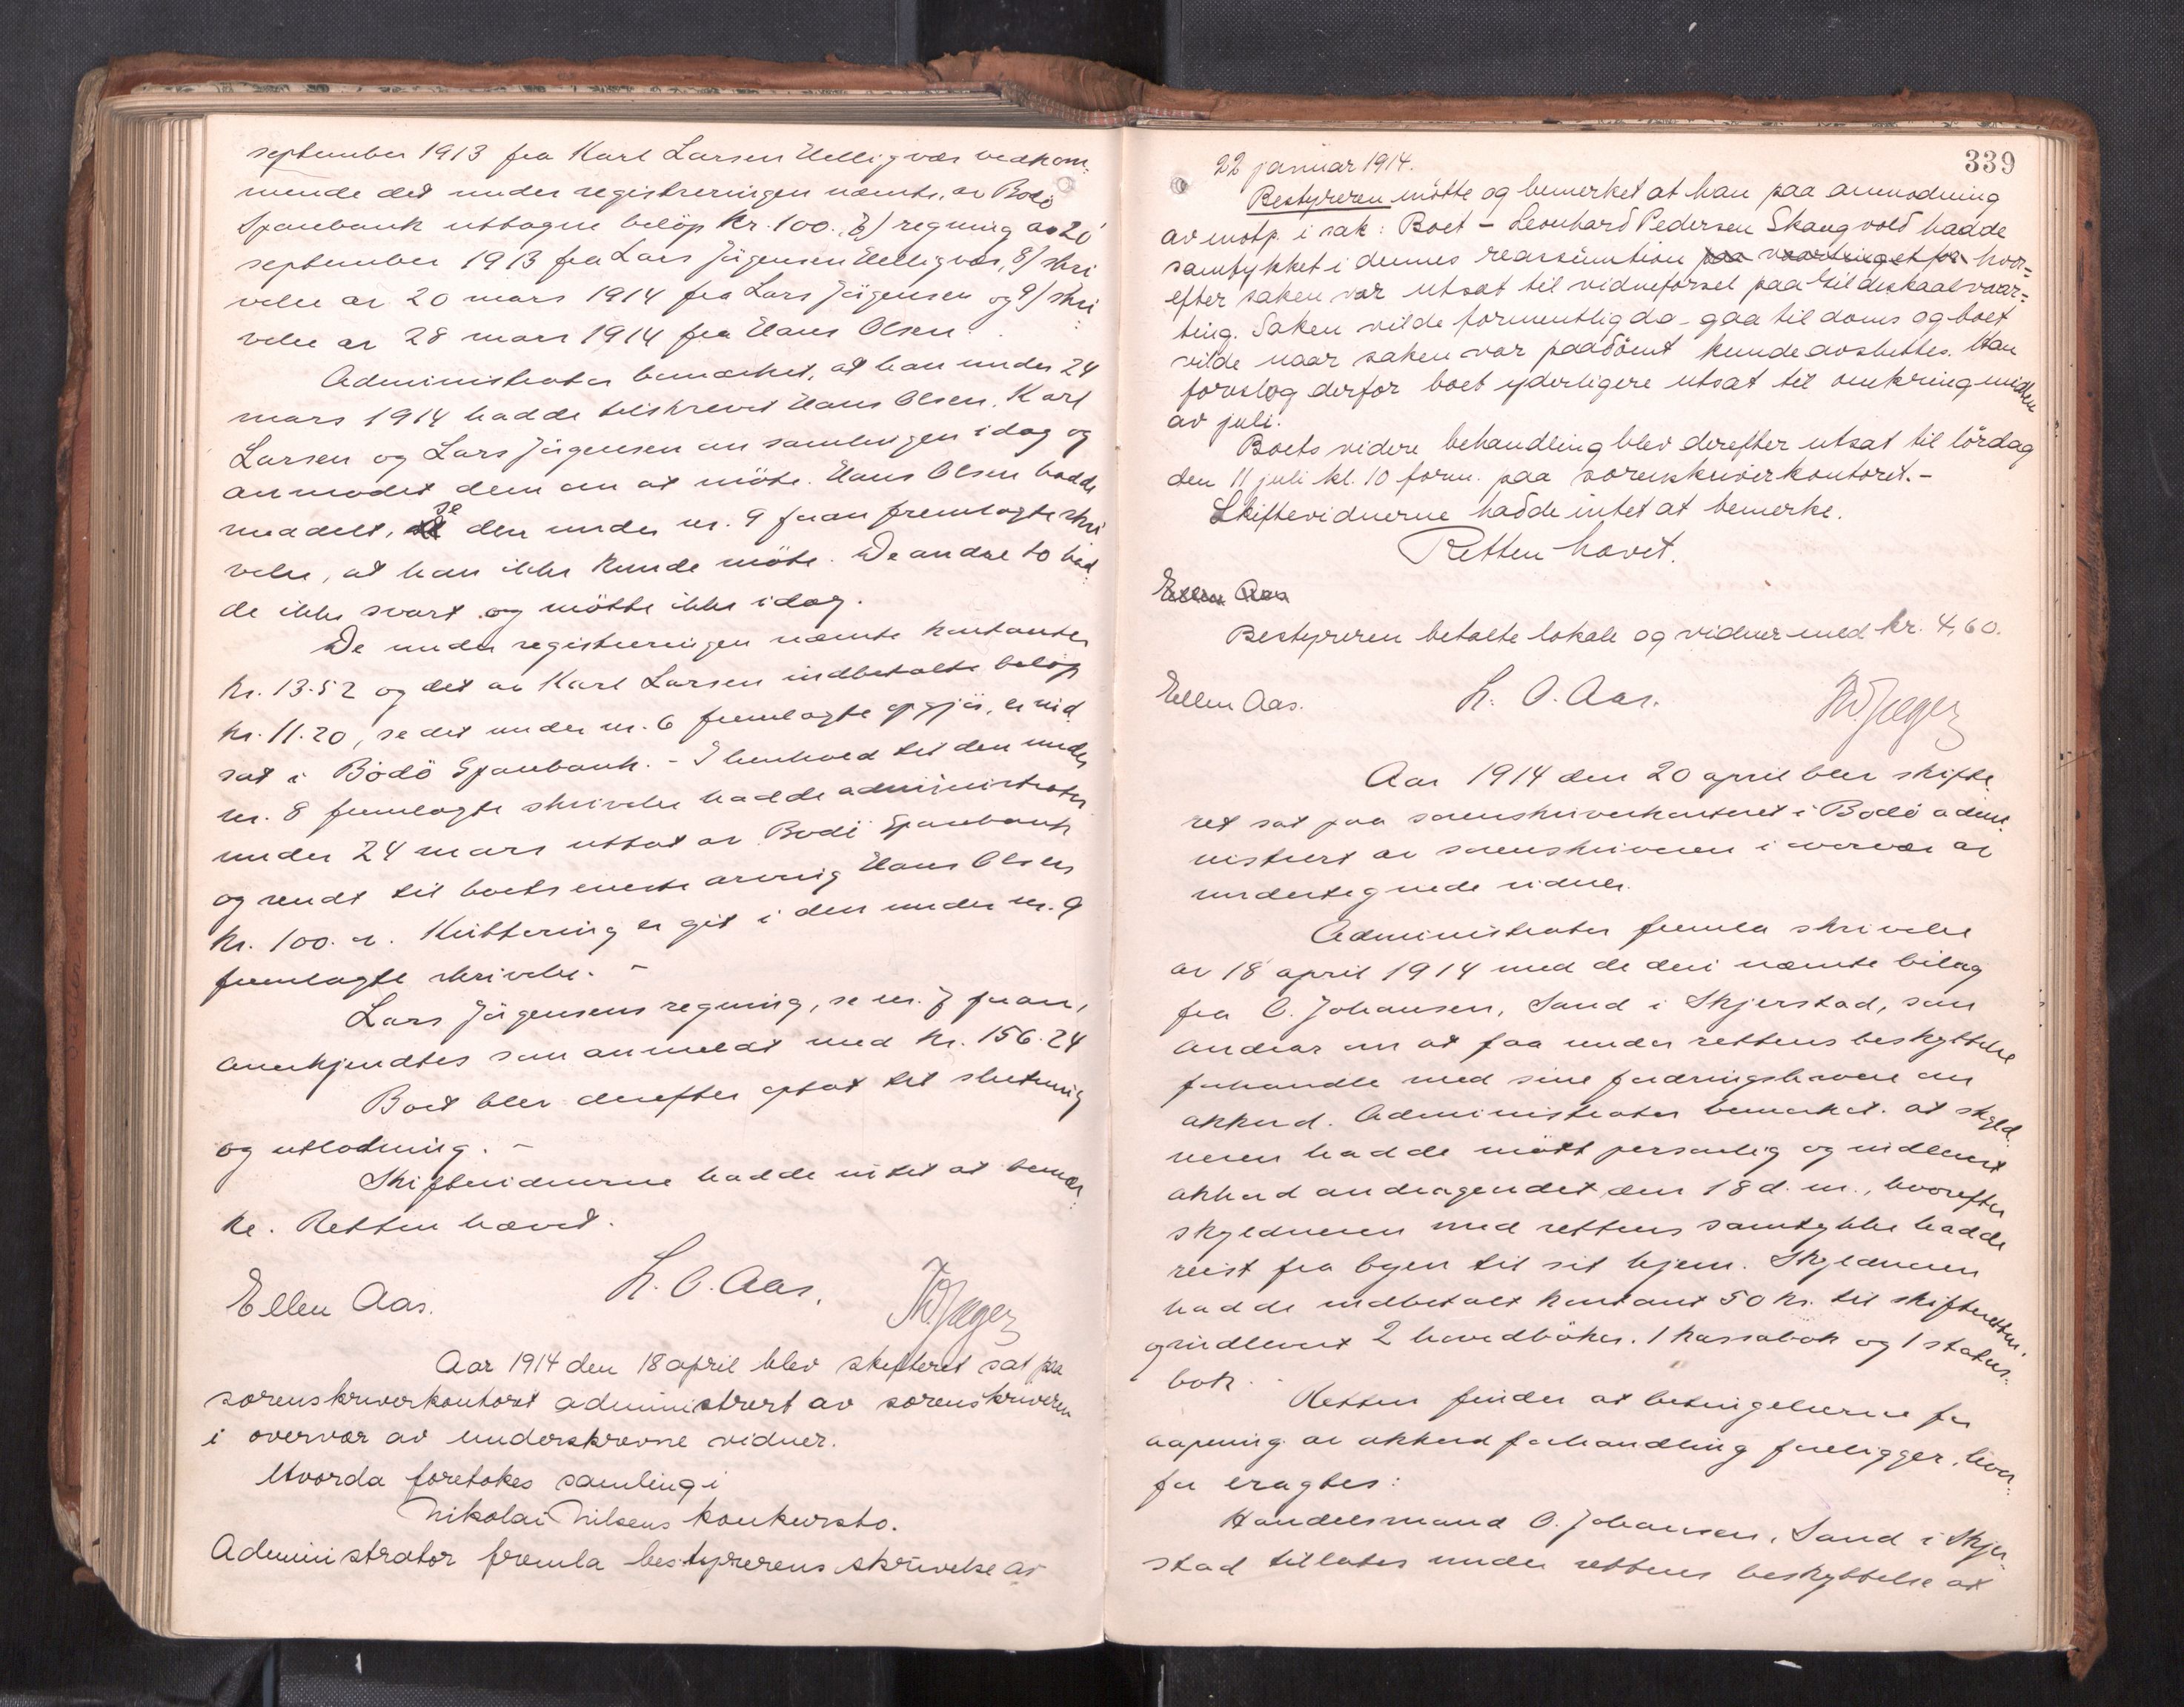 september 1913 fra Karl Larsen Helligvær vedkom-
mende det under registreringen nævnte, av Bodö
Sparebank uttagne belöp kr. 100., 7) regning av 20
september 1913 fra Lars Jörgensen Helligvær, 8) skri
velse av 20 mars 1914 fra Lars Jörgensen og 9) skri
velse av 28 mars 1914 fra Hans Olsen.
Administrator bemærket, at han under 24
mars 1914 hadde tilskrevet Hans Olsen, Karl
Larsen og Lars Jörgensen om samlingen idag og
anmodet dem om at möte. Hans Olsen hadde
meddelt, se den under nr. 9 foran fremlagte skri
velse, at han ikke kunde möte. De andre to had
de ikke svart og mötte ikke idag.
De under registreringen nævnte kontanter
kr. 13.52 og det av Karl Larsen indbetalte belöp
kr. 11.20, se det under nr. 6 fremlagte opgjör, er ind
sat i Bodö Sparebank. - I henhold til den under
nr. 8 fremlagte skrivelse hadde administrator
under 24 mars uttat av Bodö Sparebank
og sendt til boets eneste arving Hans Olsen
kr. 100. Kvittering er git i den under nr. 9
fremlagte skrivelse. -
Lars Jörgensens regning, se nr. 7 foran,
anerkjendtes som anmeldt med kr. 156.24
Boet blev derefter optat til slutning
og utlodning. -
Skiftevidnerne hadde intet at bemær
ke. Retten hævet.
Ellen Aas. L. O. Aas. Th. Jæger
Aar 1914 den 18 april blev skifteret sat paa
sorenskriverkontoret administrert av sorenskriveren
i overvær av underskrevne vidner.
Hvorda foretokes samling i
Nikolai Nilsens konkursbo.
Administrator fremla bestyrerens skrivelse av
339
22 januar 1914.
Bestyreren mötte og bemerket at han paa anmodning
av motp. i sak: Boet - Leonhard Pedersen Skaugvold hadde
samtykket i dennes reassumtion paa vaartinget for hvor=
efter saken var utsat til vidneförsel paa Gildeskaal vaar=
ting. Saken vilde formentlig da gaa til doms og boet
vilde naar saken var paadömt kunde avsluttes. Han
foreslog derfor boet yderligere utsat til omkring midten
av juli.
Boets videre behandling blev derefter utsat til lördag
den 11 juli kl. 10 form. paa sorenskriverkontoret. -
Skiftevidnerne hadde intet at bemerke.
Retten hævet.
Ellen Aas
Bestyreren betalte lokale og vidner med kr. 4,60.
Ellen Aas. L. O. Aas. Th. Jæger
Aar 1914 den 20 april blev skifte
ret sat paa sorenskriverkontoret i Bodö admi
nistrert av sorenskriveren i overvær av
undertegnede vidner.
Administrator fremla skrivelse
av 18 april 1914 med de deri nævnte bilag
fra O. Johansen, Sand i Skjerstad, som
andrar om at faa under rettens beskyttelse
forhandle med sine fordringshavere om
akkord. Administrator bemærket, at skyld
neren hadde mött personlig og indlevert
akkord andragendet den 18 d. m., hvorefter
skyldneren med rettens samtykke hadde
reist fra byen til sit hjem. Skyldneren
hadde indbetalt kontant 50 kr. til skifteretten
og indlevert 2 hovedböker, 1 kassabok og 1 status-
bok.
Retten finder at betingelserne for
aapning av akkordforhandling foreligger, hvor
for eragtes:
Handelsmand O. Johansen, Sand i Skjer-
stad tillates under rettens beskyttelse at